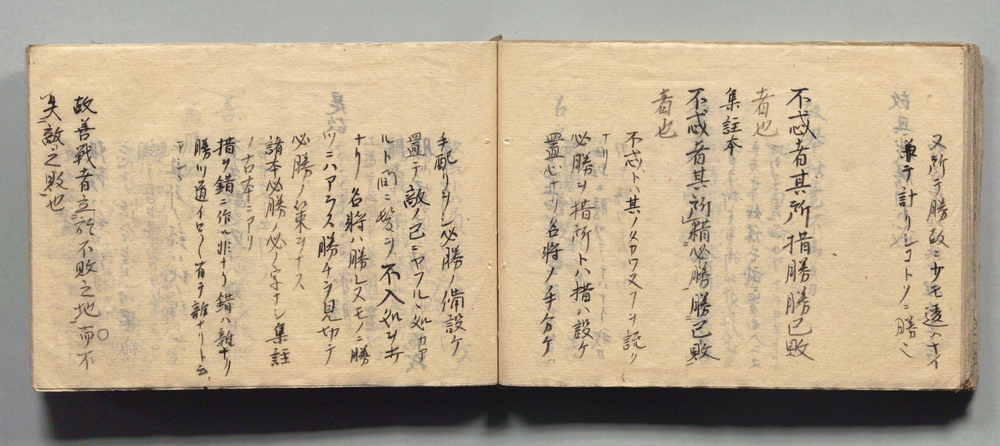 又所テ勝故ニ少モ透ハナイ
兼テ計リシコトソニ勝之
不忒者其所措勝勝已敗
者也
集註本
不忒者其所措必勝勝已敗
者也
不忒トハ其ノタカワヌヲ説リ
必勝ヲ措所トハ措ハ設ケ
ナリ
置心ナリ名将ノ手分ケ
手配リヲシ必勝ノ備設ケ
置テ敵ノ已ニヤフルヽ処カア
ルト間ニ髪ヲ不入処ヲ
ナリ名将ハ勝ルヌモノニ勝
ツニハアラス勝チヲ見切テ
必勝ノ約束ヲナス
諸本必勝ノ必ノ字ナシ集註
ノ古本ニアリ
措ヲ錯ニ作ル非ナリ錯ハ雜ナリ
勝ツ道イロイロ有テ雜ナリト云
アシヽ
故善戰者立於不敗之地而不
失敵之敗也